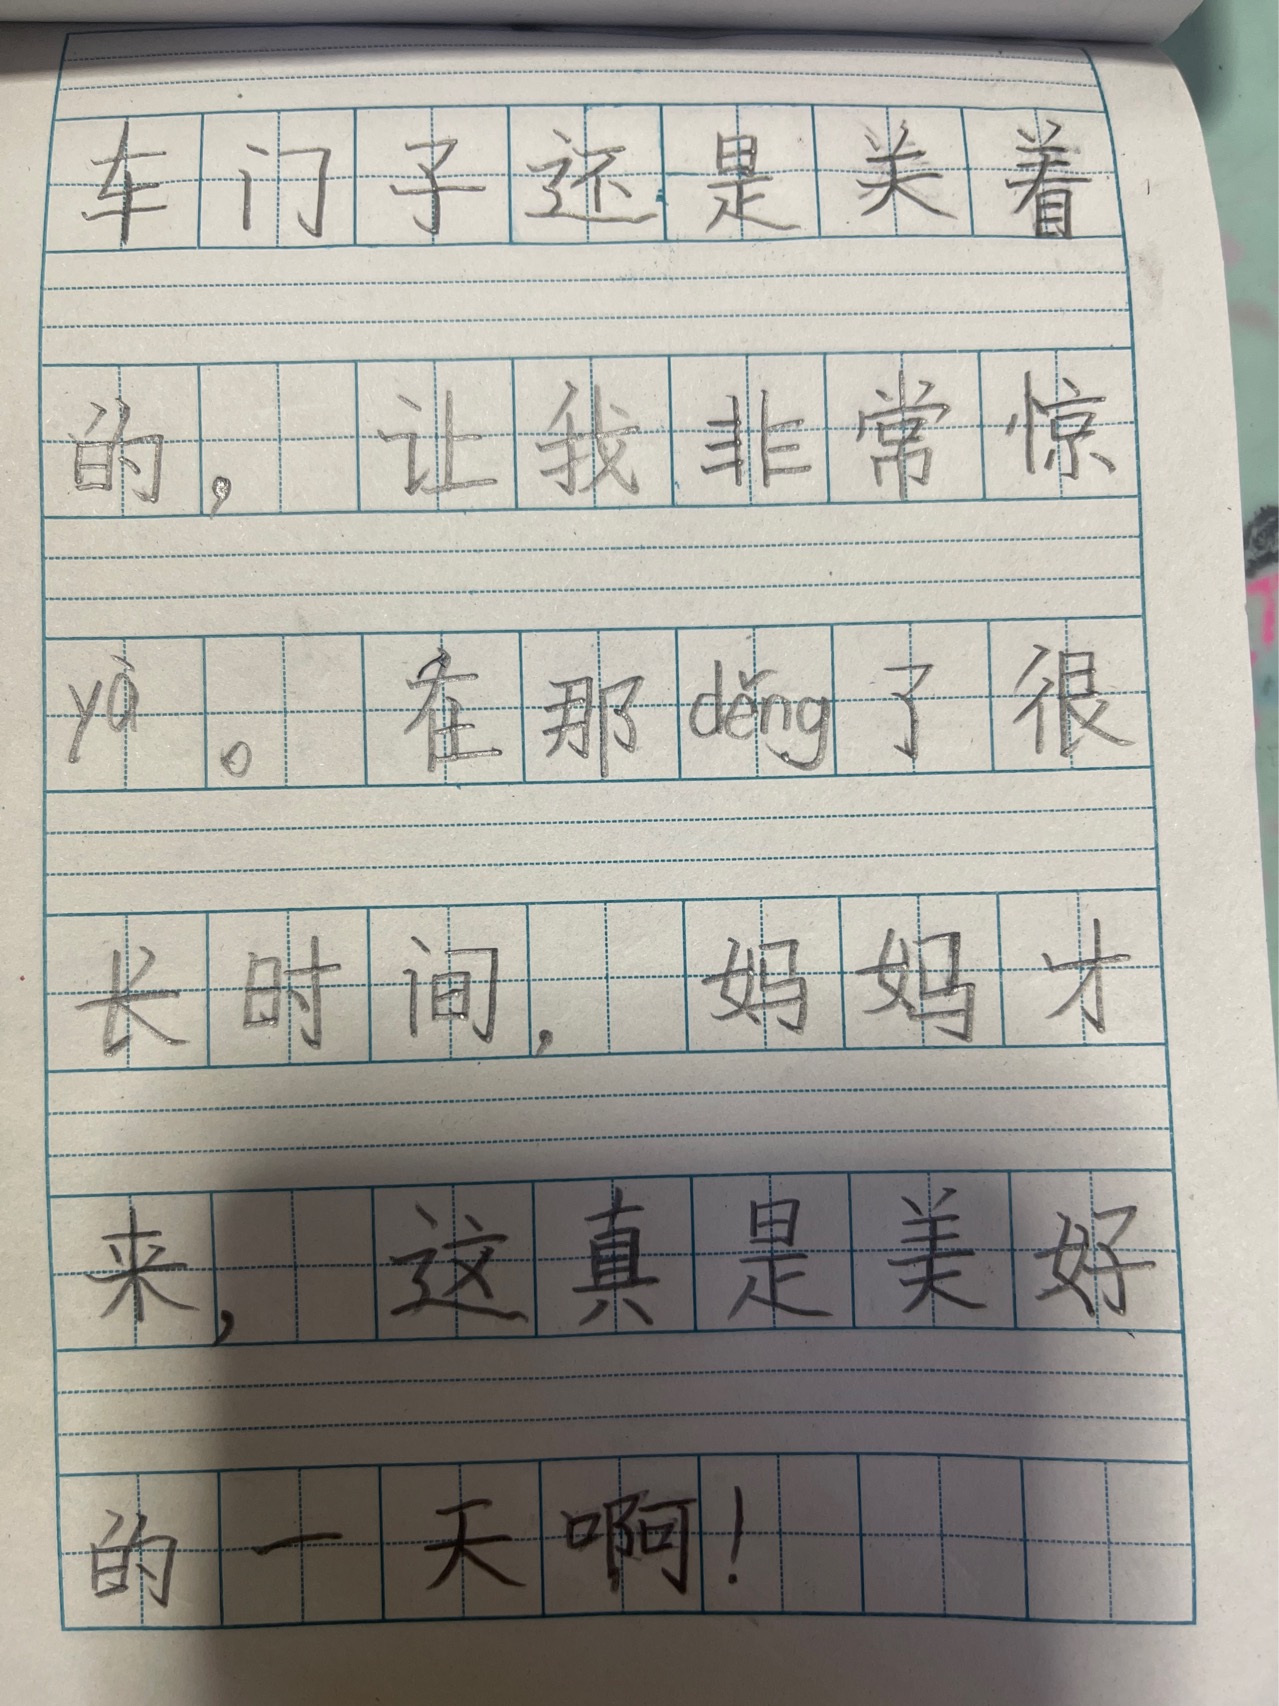 车门子还是关着
的，让我非常惊
yà。在那děng了很
长时间，妈妈才
来，这真是美好
的一天啊！